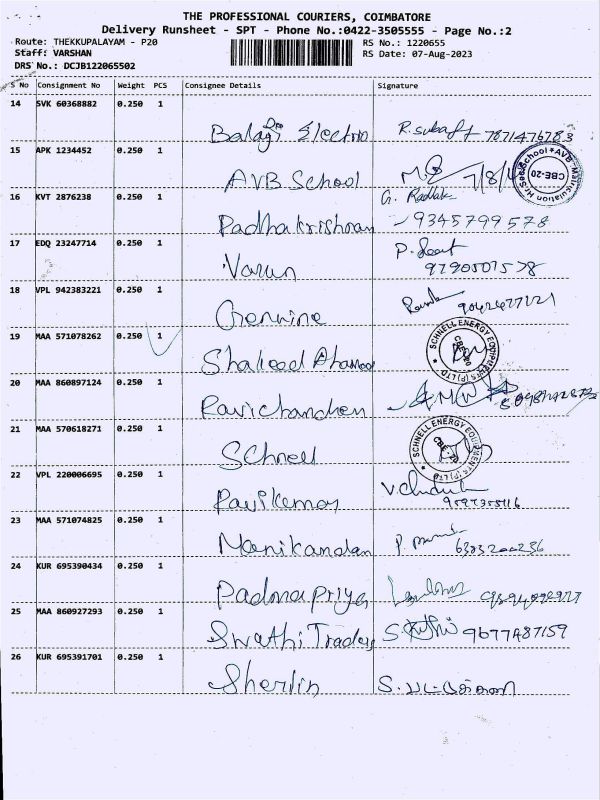 THE PROFESSIONAL COURIERS, COIMBATORE
Delivery Runsheet - SPT - Phone No.:0422-3505555 - Page No.:2
Route: THEKKUPALAYAM - P20 RS No.: 1220655
Staff: VARSHAN RS Date: 07-Aug-2023
DRS No.: DCJB122065502
S No Consignment No Weight PCS Consignee Details Signature
14 SVK 60368882 0.250 1
Balagi Electro 7871476783
15 APK 1234452 0.250 1
AVB School 7/8/
16 KVT 2876238 0.250 1
Radhakrishnan 9345799578
17 EDQ 23247714 0.250 1
Varun
18 VPL 942383221 0.250 1
Gennine
19 MAA 571078262 0.250 1
SCHNELL ENERGY EQUIPMENTS (P) LTD
20 MAA 860897124 0.250 1
Ravichandran
21 MAA 570618271 0.250 1
Schnell SCHNELL ENERGY EQUIPMENTS (P) LTD
22 VPL 220006695 0.250 1
Ravikumar
23 MAA 571074825 0.250 1
Manikandan
24 KUR 695390434 0.250 1
Padmapriya
25 MAA 860927293 0.250 1
Swathi Traders 9677487159
26 KUR 695391701 0.250 1
Sherlin